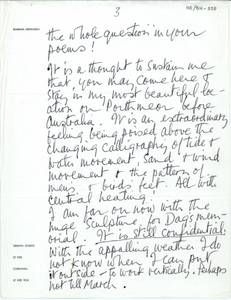 3
BARBARA HEPWORTH
the whole question in your
poems!
It is a thought to sustain me
that you may come here &
stay in my most beautiful loc
ation on Porthmeor before
Australia. It is an extraordinary
feeling being poised above the
changing calligraphy of tide &
water movement sand & wind
movement & the pattern of
mens & birds feet. All with
central heating!
I am far on now with the
huge sculpture for Dag's mem-
orial. It is still confidential.
With the appalling weather I do
not know when I can put
it outside - to work vertically. Perhaps
not till March.